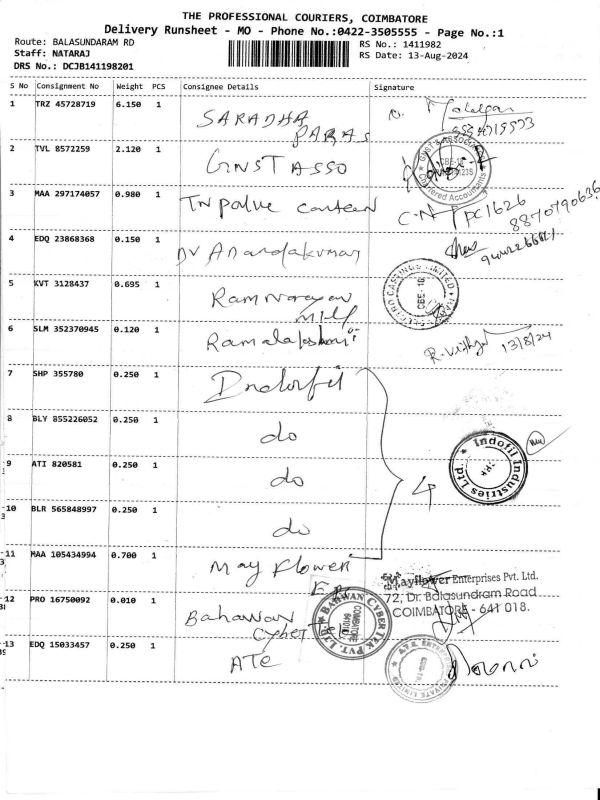 THE PROFESSIONAL COURIERS, COIMBATORE
Delivery Runsheet - MO - Phone No.:0422-3505555 - Page No.:1
Route: BALASUNDARAM RD
RS No.: 1411982
Staff: NATARAJ
RS Date: 13-Aug-2024
DRS No.: DCJB141198201
S No Consignment No Weight PCS Consignee Details Signature
1 TRZ 45728719 6.150 1 SARADHA
PARAS
2 TVL 8572259 2.120 1 GNST ASSO
3 MAA 297174057 0.980 1 TN police canteen C.N PC1626
8870790636
4 EDQ 23868368 0.150 1 Dr Anandakumar
5 KVT 3128437 0.695 1 Ram Narayan
mill
6 SLM 352370945 0.120 1 Ramalakshmi
13/8/24
7 SHP 355780 0.250 1 Indofil
8 BLY 855226052 0.250 1 do
Indofil Industries Ltd
9 ATI 820581 0.250 1 do
4
10 BLR 565848997 0.250 1 do
11 MAA 105434994 0.700 1 May Flower
Mayflower Enterprises Pvt. Ltd.
72, Dr. Balasundram Road
COIMBATORE - 641 018.
12 PRO 16750092 0.010 1 Bahawan
Cyber
BAHWAN CYBER TEK PVT. LTD.
COIMBATORE
13 EDQ 15033457 0.250 1 ATE